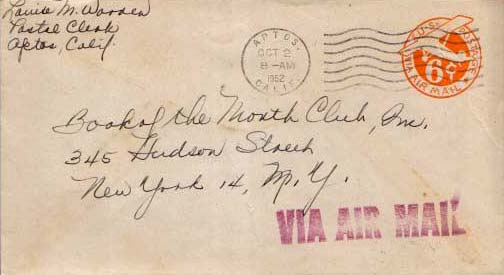 Louise M. Warden
Postal Clerk
Aptos, Calif.
APTOS
OCT 2
8-AM
1952
CALIF.
U.S. POSTAGE
6¢
VIA AIR MAIL
Book of the Month Club, Inc.
345 Hudson Street
New York 14, N.Y.
VIA AIR MAIL